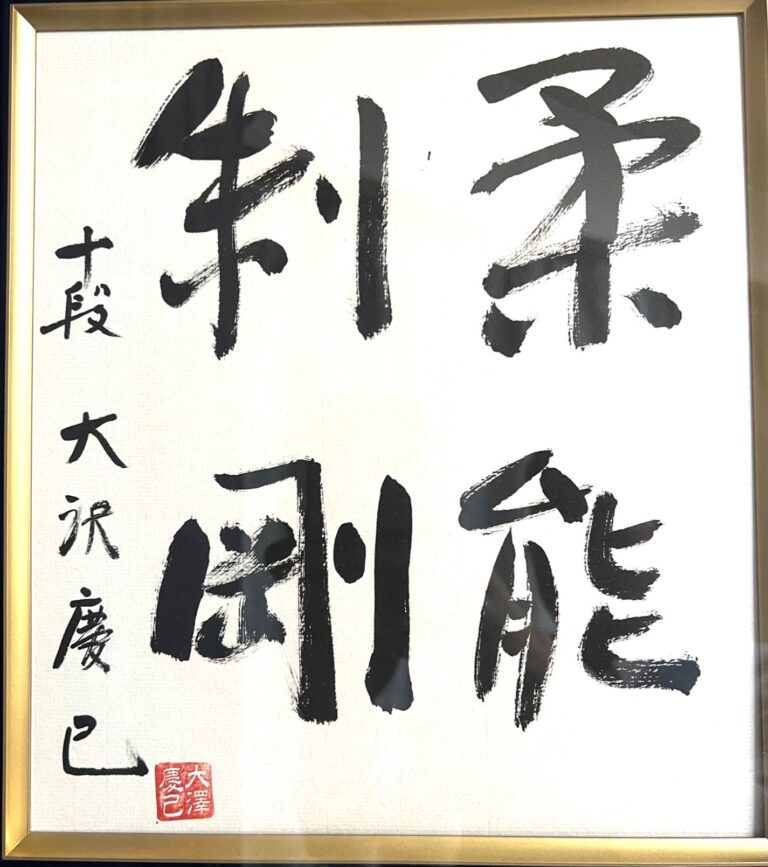 柔能
制剛
十段 大沢慶己
大澤
慶己